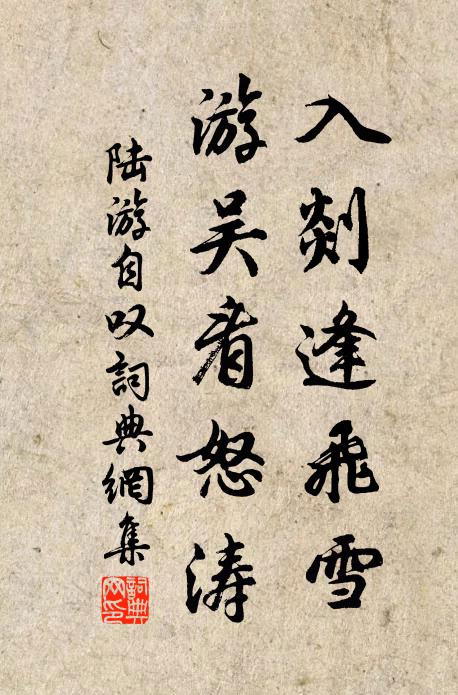 入剡逢飞雪
游吴看怒涛
陆游自叹詞典網集
詞典